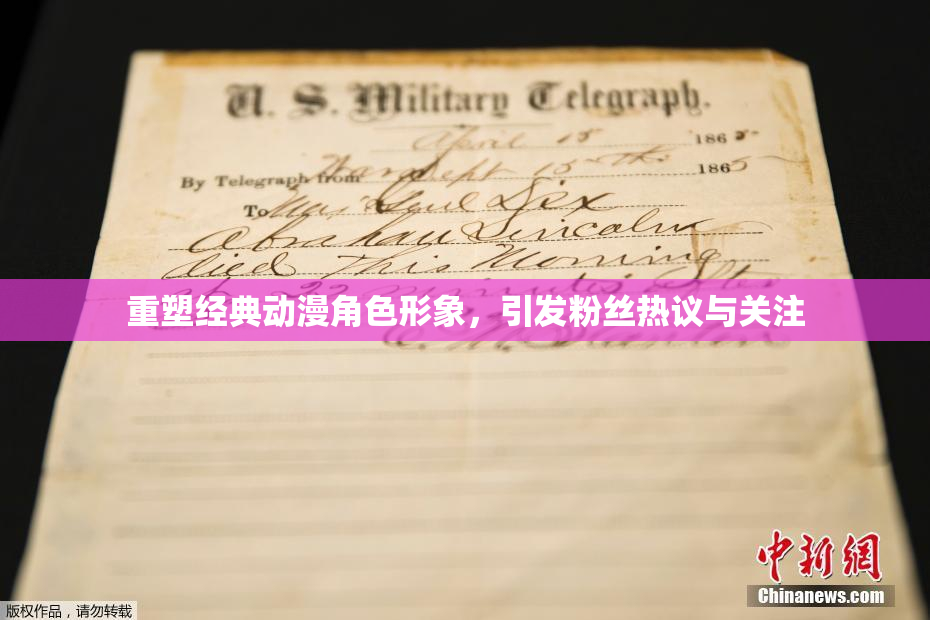 U. S. Military Telegraph.
April 15 1865
By Telegraph from War Dept 15th 1865
To Maj Genl Dix
Abraham Lincoln
died This Morning
22 minutes after
重塑经典动漫角色形象，引发粉丝热议与关注
E. M. Stanton
中新网
Chinanews.com
版权作品，请勿转载